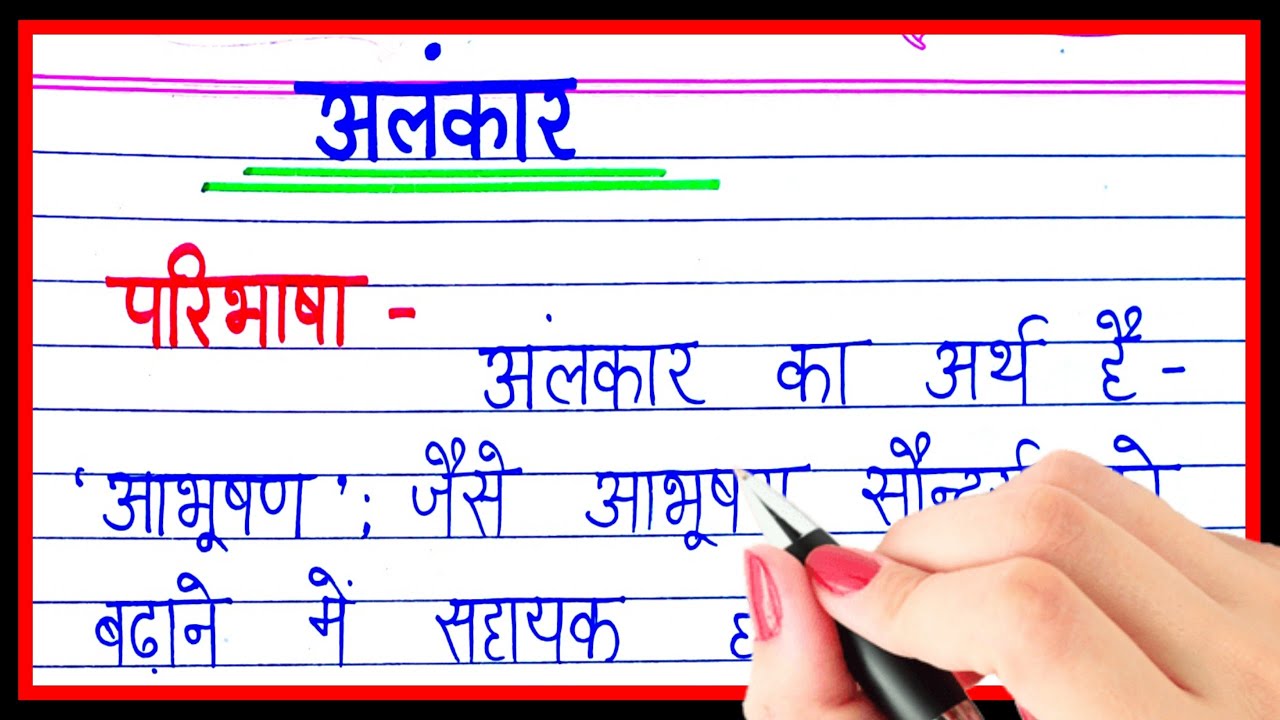 अलंकार
परिभाषा -
अंलकार का अर्थ है -
'आभूषण'; जैसे आभूषण सौन्दर्य
बढ़ाने में सहायक